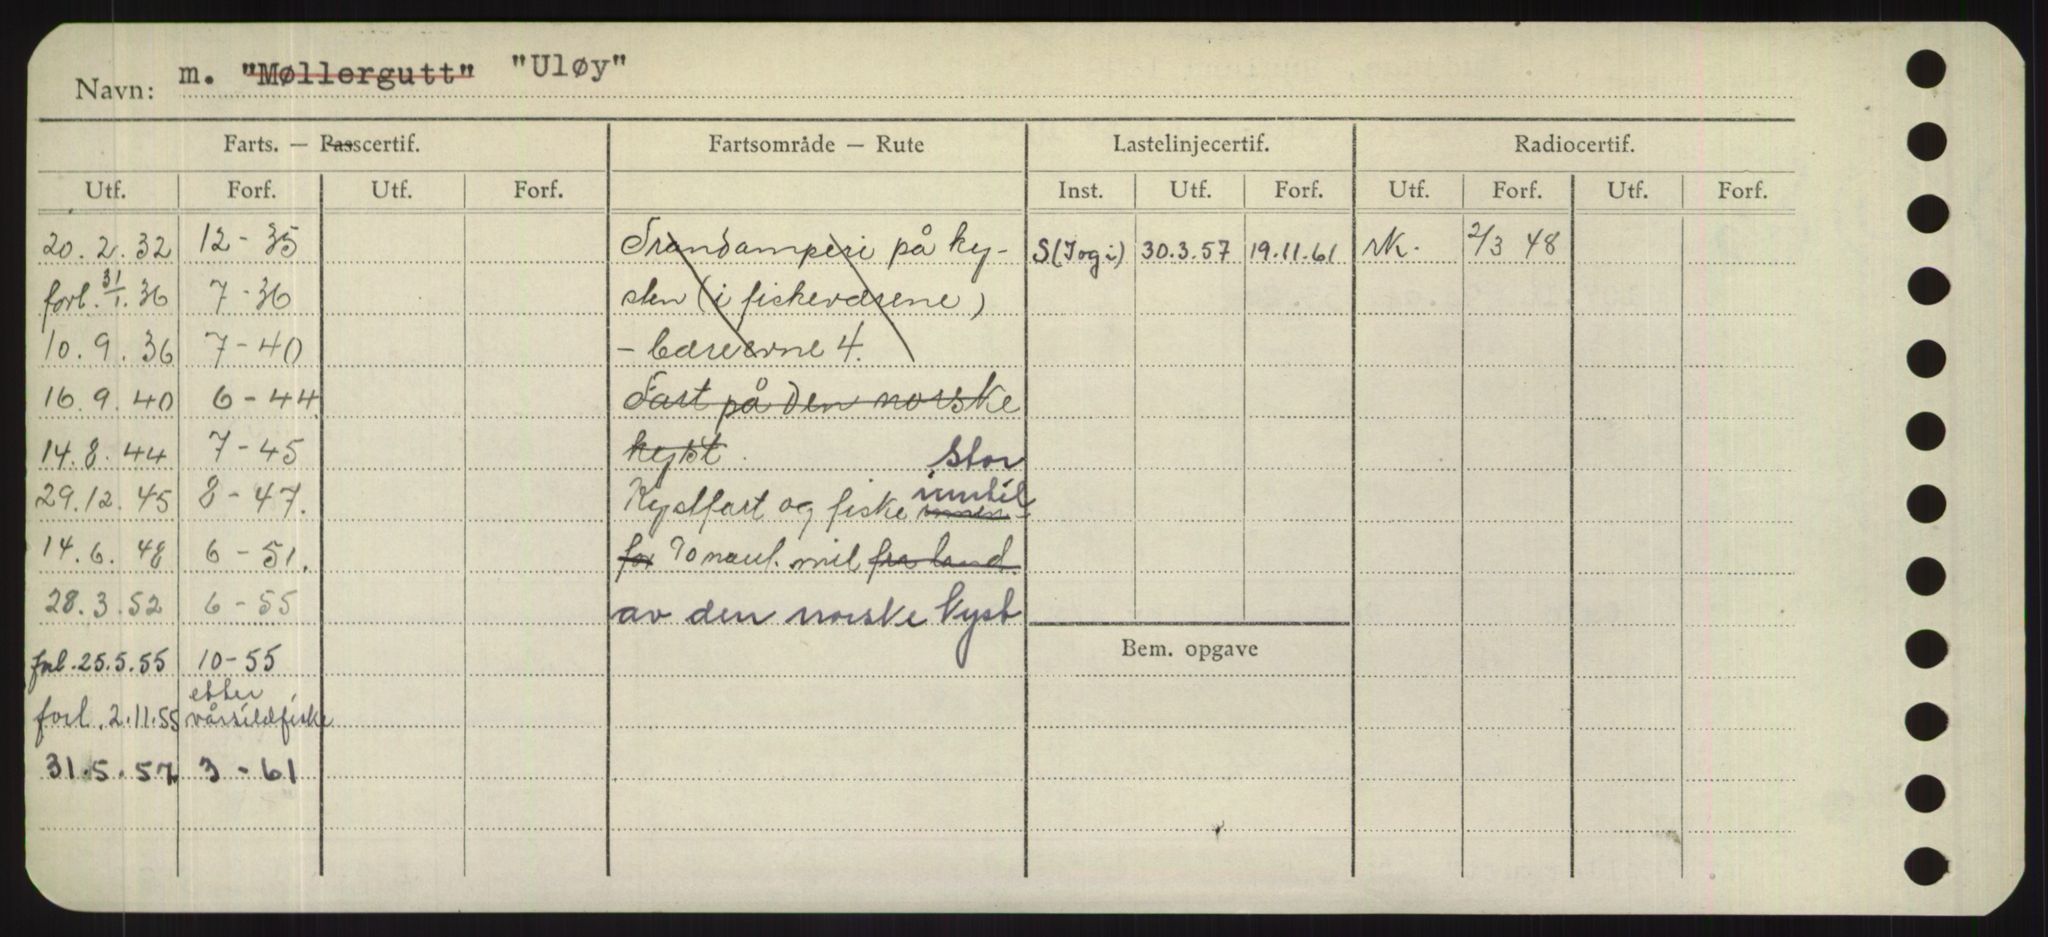 Navn: m. "Møllergutt" "Uløy"
Farts. — Passcertif. Fartsområde — Rute Lastelinjecertif. Radiocertif.
Utf. Forf. Utf. Forf. Inst. Utf. Forf. Utf. Forf. Utf. Forf.
20.2.32 12-35 Trandamperi på ky- S(Jogi) 30.3.57 19.11.61 NK. 2/3 48
forl. 31/1.36 7-36 sten (i fiskeværene)
10.9.36 7-40 - bæreevne 4.
16.9.40 6-44 Fart på den norske
14.8.44 7-45 kyst. stor
29.12.45 8-47. Kystfart og fiske inntil innen-
14.6.48 6-51. for 70 naut. mil fra land.
28.3.52 6-55 av den norske kyst
forl. 25.5.55 10-55 Bem. opgave
forl. 2.11.55 etter vårsildfiske
31.5.57 3-61